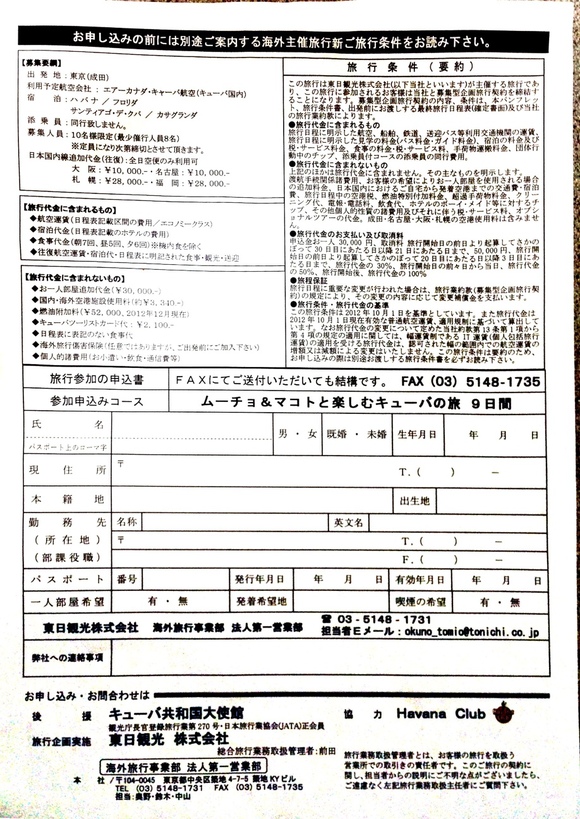 お申し込みの前には別途ご案内する海外主催旅行新ご旅行条件をお読み下さい。
【募集要綱】
出 発 地：東京(成田)
利用予定航空会社：エアーカナダ・キャーバ航空(キューバ国内)
宿 泊：ハバナ / フロリダ
サンティアゴ・デ・クバ / カサグランダ
添 乗 員：同行致しません。
募 集 人 員：10名様限定(最少催行人員8名)
※定員になり次第締切とさせて頂きます。
日本国内線追加代金(往復)：全日空便のみ利用可
大 阪：￥10,000.-・名古屋：￥10,000.-
札 幌：￥28,000.-・福 岡：￥28,000.-
【旅行代金に含まれるもの】
◆航空運賃(日程表記載区間の費用/エコノミークラス)
◆宿泊代金(日程表記載のホテルの費用)
◆食事代金(朝7回、昼5回、夕6回)※機内食を除く
◆往復航空運賃・宿泊代・日程表に明記された食事・観光・送迎
【旅行代金に含まれないもの】
◆お一人部屋追加代金(￥30,000.-)
◆国内・海外空港施設使用料(約￥3,340.-)
◆燃油附加料(￥52,000,2012年12月現在)
◆キューバツーリストカード代：￥2,100.-
◆日程表に表記のない食事代
◆海外旅行傷害保険(任意ではありますが、ご出発前にご加入下さい)
◆個人的諸費用(お小遣い・飲食・通信費等)
旅 行 条 件 (要 約)
この旅行は東日観光株式会社(以下当社といいます)が主催する旅行であり、この旅行に参加されるお客様は当社と募集型企画旅行契約を締結することになります。募集型企画旅行契約の内容、条件は、本パンフレット、旅行条件書、出発前にお渡しする最終旅行日程表(確定書面)及び当社の旅行業約款によります。
●旅行代金に含まれるもの
旅行日程に明示した航空、船舶、鉄道、送迎バス等利用交通機関の運賃、旅行日程に明示した見学の料金(バス料金・ガイド料金)、宿泊の料金及び税・サービス料金、食事の料金・税・サービス料、手荷物運搬料金、団体行動中のチップ、添乗員付コースの添乗員の同行費用。
●旅行代金に含まれないもの
上記のほかは旅行代金に含まれません。その主なものを明示します。
渡航手続関係諸費用、お客様の希望によりお一人部屋を使用される場合の追加料金、日本国内におけるご自宅から発着空港までの交通費・宿泊費、旅行日程中の空港税、燃油特別付加料金、超過手荷物料金、クリーニング代、電報・電話料、飲食代、ホテルのボーイ・メイド等に対するチップ、その他個人的性質の諸費用及びそれに伴う税・サービス料、オプショナルツアーの代金、成田・名古屋・大阪の空港使用料は含みません。
●旅行代金のお支払い及び取消料
申込金お一人 30,000円、取消料 旅行開始日の前日より起算してさかのぼって 30日目にあたる日以降21日にあたる日まで、50,000円、旅行開始日の前日より起算してさかのぼって 20日目にあたる日以降3日目にあたる日まで、旅行代金の 30%、旅行開始日の前々日から当日、旅行代金の 50%、旅行開始後、旅行代金の 100%
●旅程保証
旅行日程に重要な変更が行われた場合は、旅行業約款(募集型企画旅行契約)の規定により、その変更の内容に応じて変更補償金を支払います。
●旅行条件・旅行代金の基準
この旅行条件は 2012年10月1日を基準としています。また旅行代金は 2012年10月1日現在有効な普通航空運賃、適用規則に基づいて算出しています。なお旅行代金の変更について定めた当社約款第 13 条第 1 項から第 4 項の規定の適用に関しては、幅運賃制である IT 運賃(個人包括旅行運賃)の適用を受ける旅行代金は、認可された幅の範囲内での航空運賃の増額又は減額による変更はいたしません。この旅行条件は要約のため、お申し込みの際は別途お渡しする旅行条件書を必ずお読み下さい。
旅行参加の申込書 FAXにてご送付いただいても結構です。 FAX (03) 5148-1735
参加申込みコース ムーチョ＆マコトと楽しむキューバの旅 9日間
氏 名 男・女 既婚・未婚 生年月日 年 月 日
パスポート上のローマ字
現 住 所 〒 T.( ) －
本 籍 地 出生地
勤 務 先 名称 英文名
(所在地) 〒 T.( ) －
(部課役職) F.( ) －
パスポート 番号 発行年月日 年 月 日 有効年月日 年 月 日
一人部屋希望 有・無 発着希望地 喫煙の希望 有・無
東日観光株式会社 海外旅行事業部 法人第一営業部 ☎ 03-5148-1731
担当者Eメール：okuno_tomio@tonichi.co.jp
弊社への連絡事項
お申し込み・お問合わせは
後 援 キューバ共和国大使館 協 力 Havana Club
観光庁長官登録旅行業第270号・日本旅行業協会(JATA)正会員
旅行企画実施 東日観光 株式会社
総合旅行業務取扱管理者：前田
海外旅行事業部 法人第一営業部
本 社 /〒104-0045 東京都中央区築地 4-7-5 築地KYビル
TEL (03) 5148-1731 FAX (03) 5148-1735
担当：奥野・鈴木・中山
旅行業務取扱管理者とは、お客様の旅行を取扱う
営業所での取引きの責任者です。このご旅行の契約に
関し、担当者からの説明にご不明な点がございましたら、
ご遠慮なく左記旅行業務取扱主任者にご質問下さい。